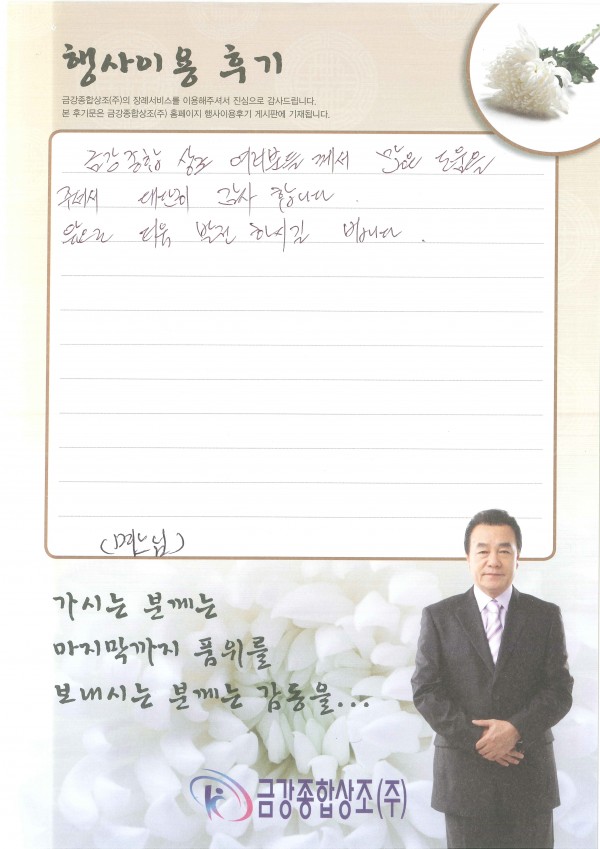 행사이용 후기
금강종합상조(주)의 장례서비스를 이용해주셔서 진심으로 감사드립니다.
본 후기문은 금강종합상조(주) 홈페이지 행사이용후기 게시판에 기재됩니다.
금강종합 상조 여러분들께서 많은 도움을
주셔서 대단히 감사 합니다.
앞으로 더욱 발전 하시길 빕니다.
(며느님)
가시는 분께는
마지막까지 품위를
보내시는 분께는 감동을...
금강종합상조(주)